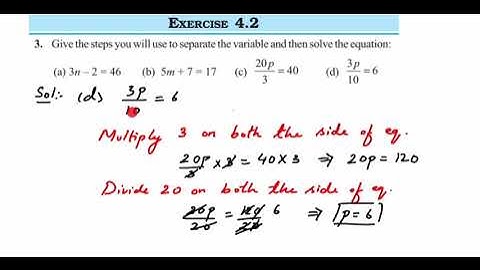 EXERCISE 4.2
3. Give the steps you will use to separate the variable and then solve the equation:
(a) 3n – 2 = 46 (b) 5m + 7 = 17 (c) 20p/3 = 40 (d) 3p/10 = 6
Sol:- (d) 3p/10 = 6
Multiply 3 on both the side of eq.
20p/3 × 3 = 40 × 3 ⇒ 20p = 120
Divide 20 on both the side of eq.
20p/20 = 120/20 6 ⇒ p = 6